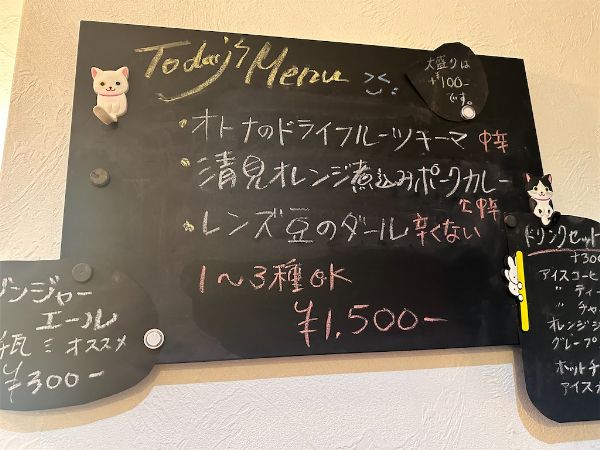 Today's Menu
大盛りは
+¥100-
です。
・オトナのドライフルーツキーマ 中辛
・清見オレンジ煮込みポークカレー
中辛
・レンズ豆のダール 辛くない
1〜3種OK
¥1,500-
ジンジャー
エール
オススメ
¥300-
ドリンクセット
+300
アイスコーヒ
〃 ティー
〃 チャ
オレンジジ
グレープ
ホットチ
アイス